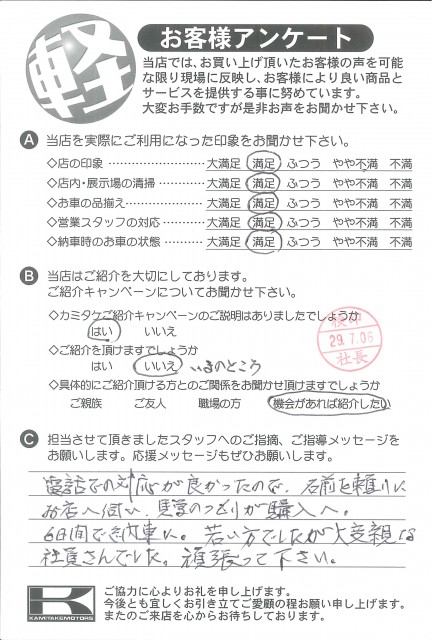 軽
お客様アンケート
当店では、お買い上げ頂いたお客様の声を可能
な限り現場に反映し、お客様により良い商品と
サービスを提供する事に努めています。
大変お手数ですが是非お声をお聞かせ下さい。
A 当店を実際にご利用になった印象をお聞かせ下さい。
◇店の印象 大満足 満足 ふつう やや不満 不満
◇店内・展示場の清掃 大満足 満足 ふつう やや不満 不満
◇お車の品揃え 大満足 満足 ふつう やや不満 不満
◇営業スタッフの対応 大満足 満足 ふつう やや不満 不満
◇納車時のお車の状態 大満足 満足 ふつう やや不満 不満
B 当店はご紹介を大切にしております。
ご紹介キャンペーンについてお聞かせ下さい。
◇カミタケご紹介キャンペーンのご説明はありましたでしょうか
はい いいえ
検印
29.7.06
社長
◇ご紹介を頂けますでしょうか
はい いいえ いまのところ
◇具体的にご紹介頂ける方とのご関係をお聞かせ頂けますでしょうか
ご親族 ご友人 職場の方 機会があれば紹介したい
C 担当させて頂きましたスタッフへのご指摘、ご指導メッセージを
お願いします。応援メッセージもぜひお願いします。
電話での対応が良かったので、名前を頼りに
お店へ伺い、見学のつもりが購入へ。
6日間で納車に。若い方でしたが大変親切な
社員さんでした。頑張って下さい。
K
KAMITAKEMOTORS
ご協力に心よりお礼を申し上げます。
今後とも宜しくお引き立てご愛顧の程お願い申し上げます。
またのご来店を心からお待ちしております。